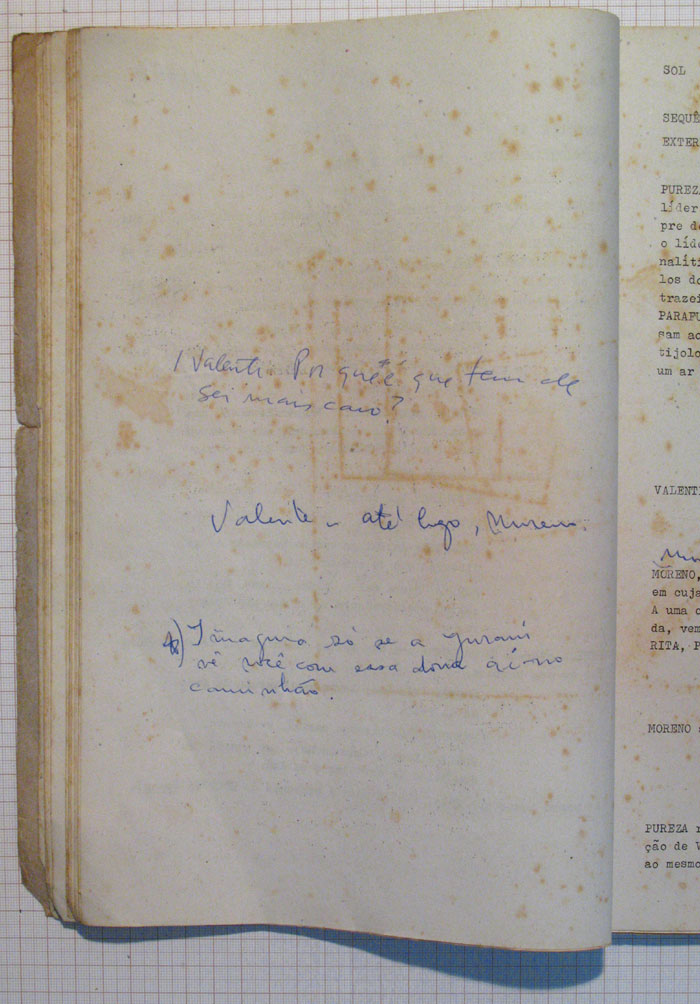 / Valente Por quê é que tem de
ser mais caro?
Valente - até logo, Moreno.
*) Imagina só se a Jurani
vê você com essa dona aí no
caminhão.
SOL
SEQUÊ
EXTER
PUREZA
líder
pre de
o líde
nalíti
los do
trazei
PARAFU
sam ao
tijolo
um ar
VALENTE
MORENO,
em cuja
A uma o
da, vem
RITA, P
MORENO
PUREZA
ção de V
ao mesmo